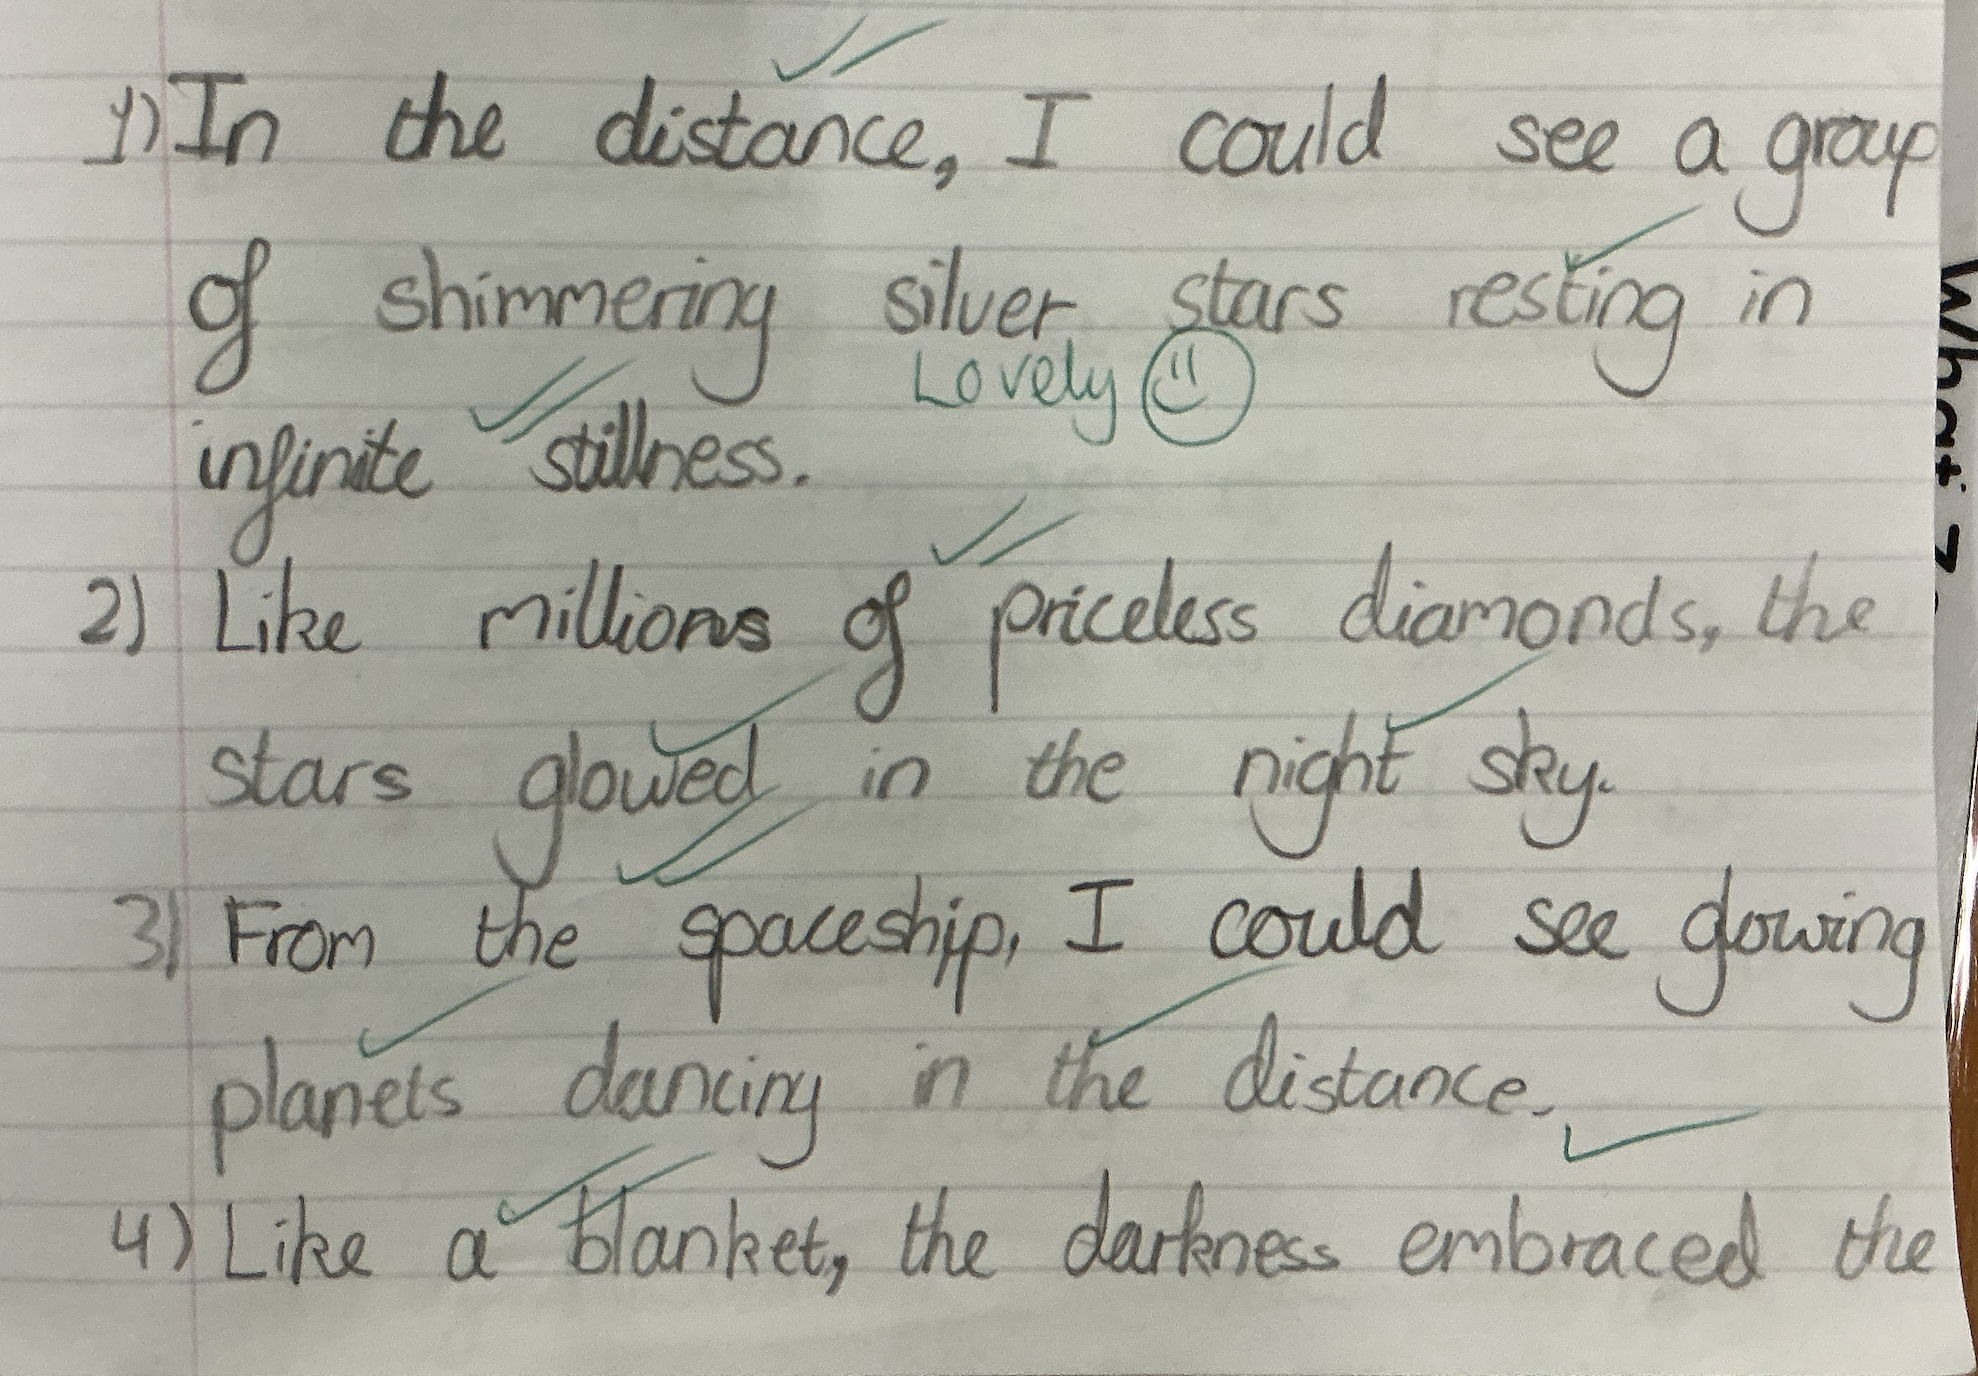 1) In the distance, I could see a group
of shimmering silver stars resting in
Lovely
infinite stillness.
2) Like millions of priceless diamonds, the
stars glowed in the night sky.
3) From the spaceship, I could see glowing
planets dancing in the distance.
4) Like a blanket, the darkness embraced the
What